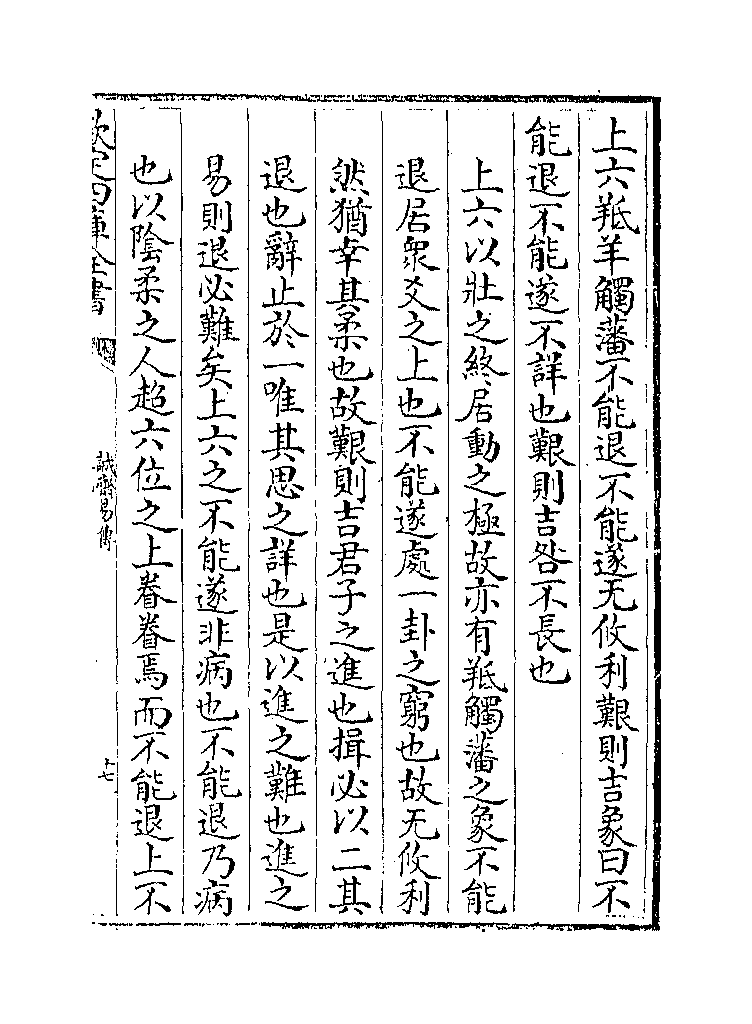 上六羝羊觸藩不能退不能遂无攸利艱則吉象曰不
能退不能遂不詳也艱則吉咎不長也
上六以壯之終居動之極故亦有羝觸藩之象不能
退居衆爻之上也不能遂處一卦之窮也故无攸利
然猶幸其柔也故艱則吉君子之進也揖必以二其
退也辭止於一唯其思之詳也是以進之難也進之
易則退必難矣上六之不能遂非病也不能退乃病
也以陰柔之人超六位之上眷眷焉而不能退上不
欽定四庫全書
誠齋易傳
十七